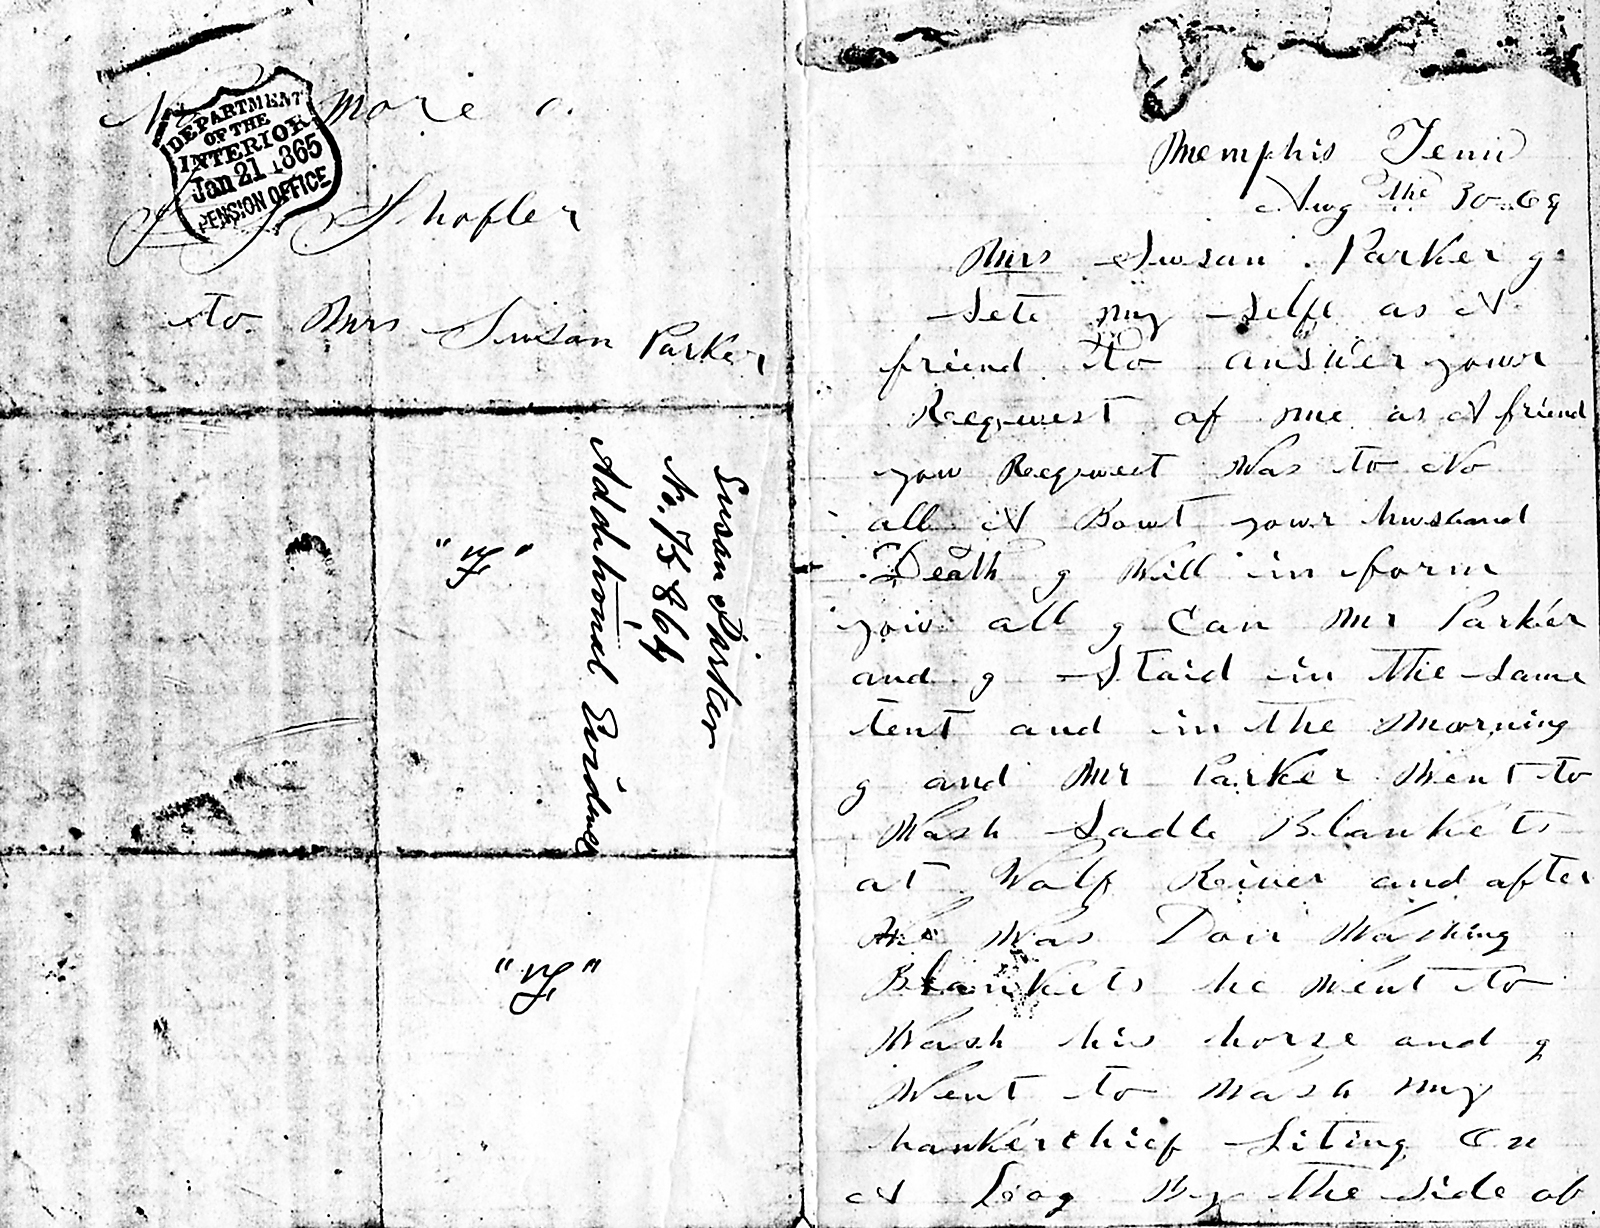 No more a
J S Shofler
to Mrs Suesan Parker
DEPARTMENT
OF THE
INTERIOR
Jan 21 1865
PENSION OFFICE
Susan Parker
No. 75864
Additional Evidence
Memphis Tenn
Aug the 30 - 69
Mrs Suesan Parker g
Sete my self as A
friend to answer your
Requuest of me as A friend
you Reqwest Was to No
all A Bout your husband
Death g Will in form
you all g Can Mr Parker
and g Staid in the same
tent and in the Morning
g and Mr Parker Went to
Wash Sadle Blankets
at Wolf River and after
he Was Don Washing
Blankets he Went to
Wash his horse and g
Went to Wash my
hankerchief Siting On
A Loog By the side of